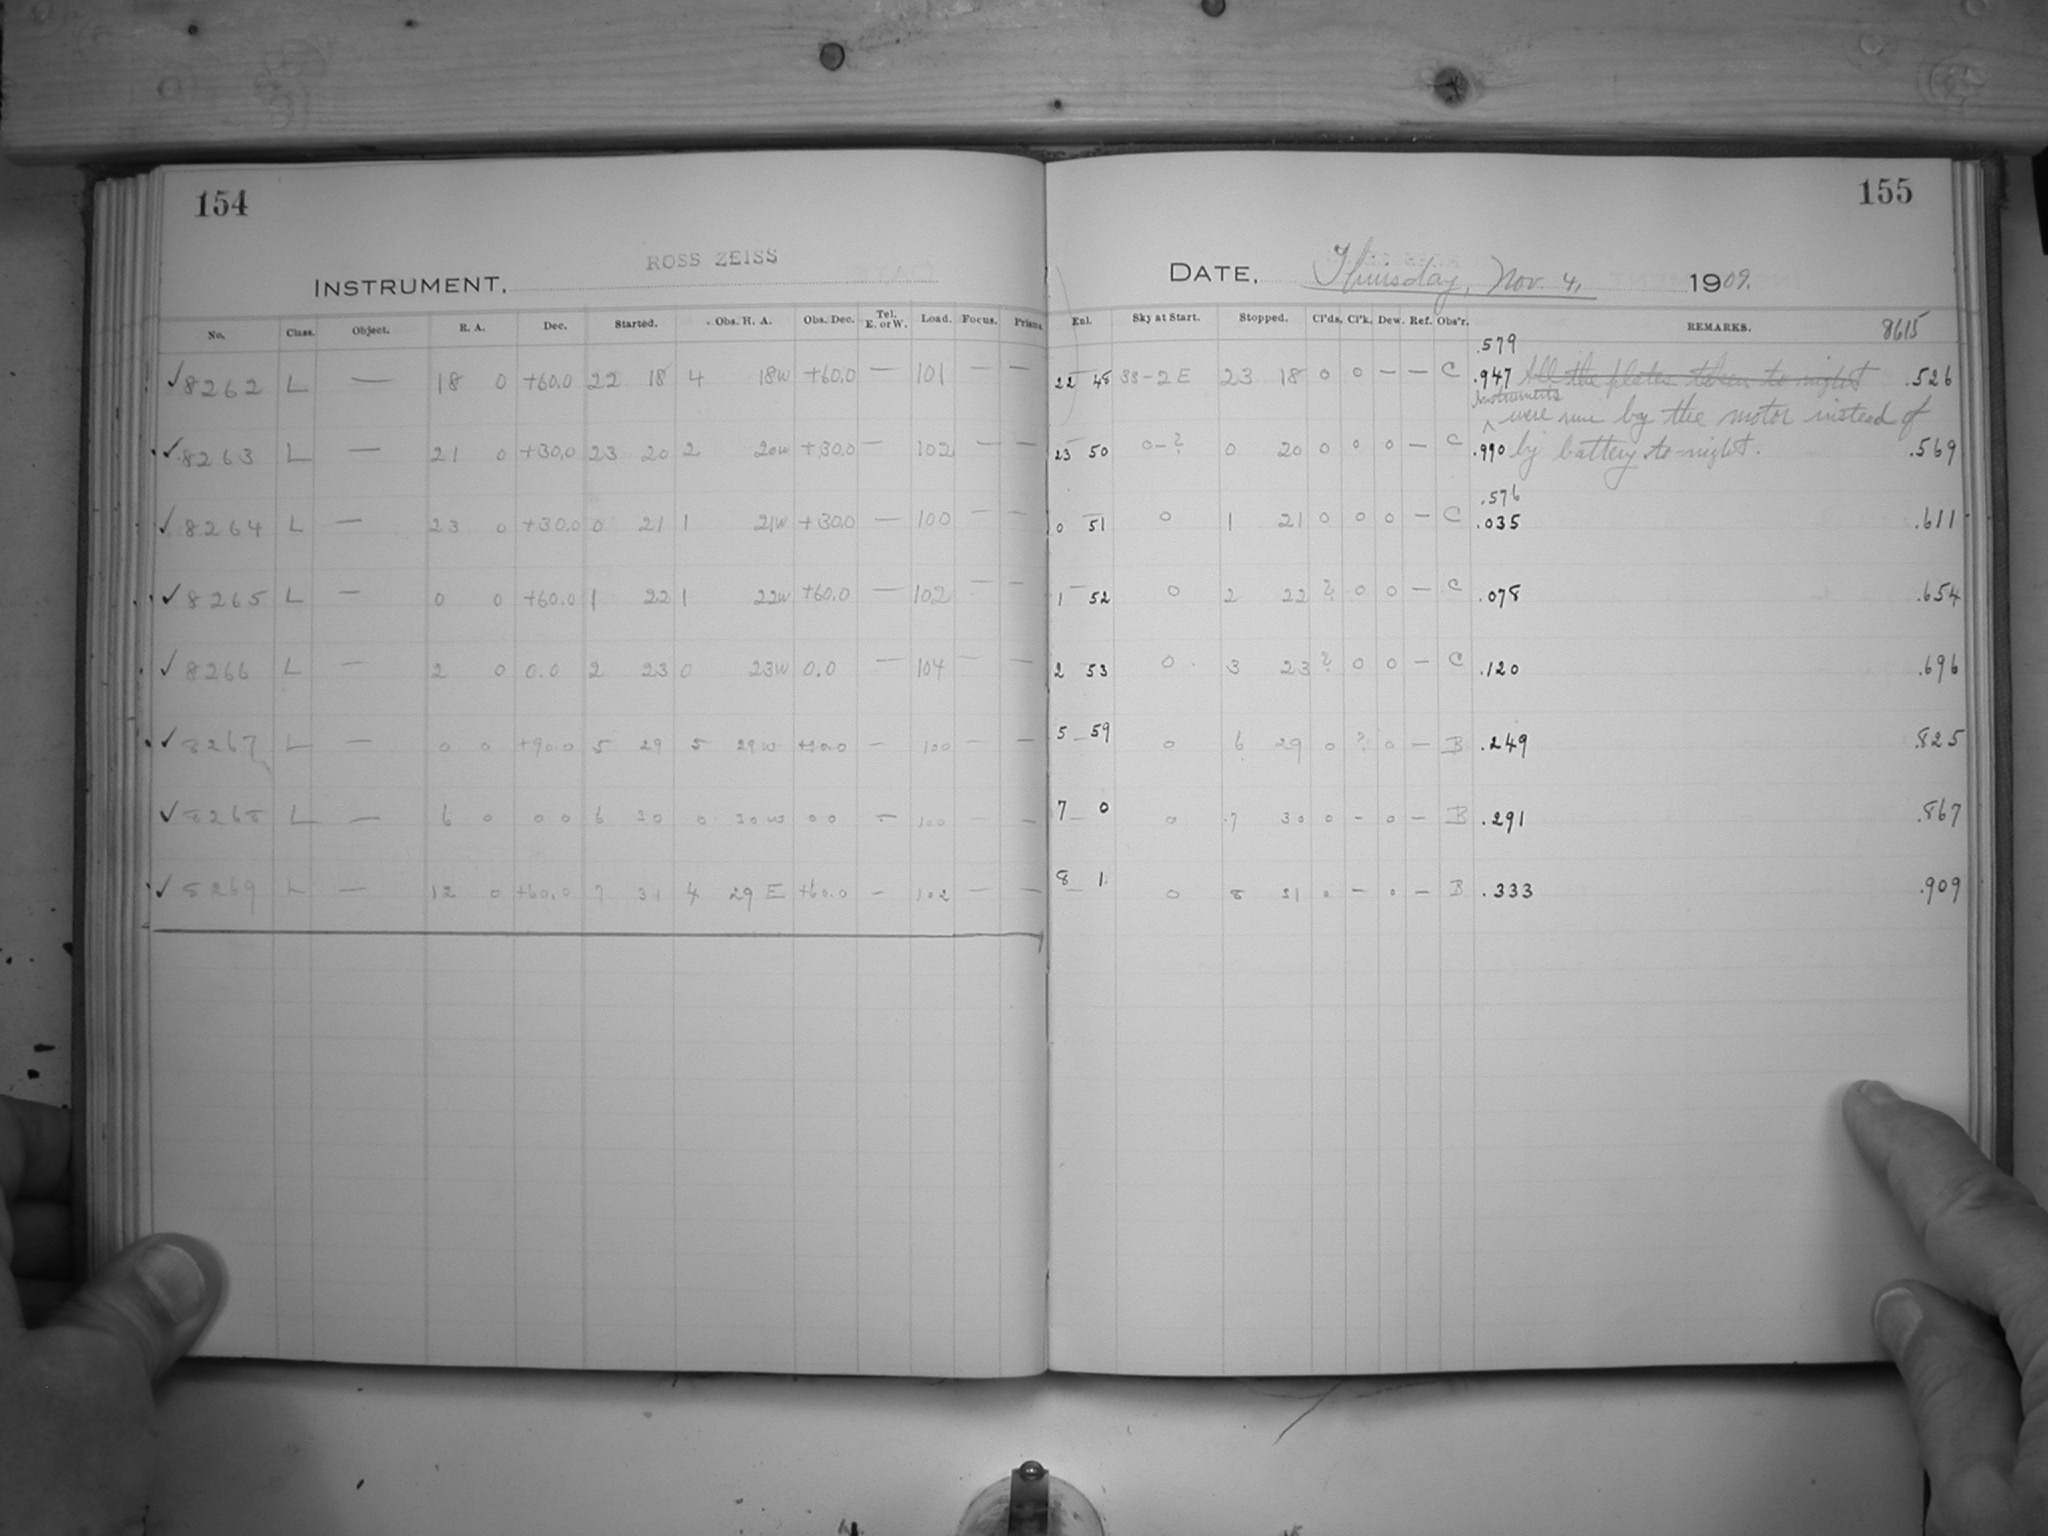 154
ROSS ZEISS
INSTRUMENT.
No. Class. Object. R. A. Dec. Started. Obs. H. A. Obs. Dec. Tel. E. or W. Load. Focus. Prisms.
✓8262 L — 18 0 +60.0 22 18 4 18W +60.0 — 101 — —
✓8263 L — 21 0 +30.0 23 20 2 20W +30.0 — 102 — —
✓8264 L — 23 0 +30.0 0 21 1 21W +30.0 — 100 — —
✓8265 L — 0 0 +60.0 1 22 1 22W +60.0 — 102 — —
✓8266 L — 2 0 0.0 2 23 0 23W 0.0 — 104 — —
✓8267 L — 0 0 +90.0 5 29 5 29W +90.0 — 100 — —
✓8268 L — 6 0 0 0 6 30 0 30W 0 0 — 100 — —
✓8269 L — 12 0 +60.0 7 31 4 29 E +60.0 — 102 — —
155
DATE. Thursday, Nov. 4, 1909.
Enl. Sky at Start. Stopped. Cl'ds. Cl'k. Dew. Ref. Obs'r. REMARKS. 8615
.579
22 48 38-2E 23 18 0 0 — — C .947 All the plates taken to-night .526
Instruments
^ were run by the motor instead of
23 50 0-? 0 20 0 0 0 — C .990 by battery to-night. .569
.576
0 51 0 1 21 0 0 0 — C .035 .611
1 52 0 2 22 ? 0 0 — C .078 .654
2 53 0 3 23 ? 0 0 — C .120 .696
5 59 0 6 29 0 ? 0 — B .249 .825
7 0 0 7 30 0 - 0 — B .291 .867
8 1 0 8 31 0 - 0 — B .333 .909